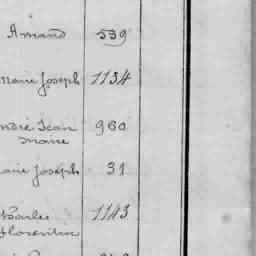 Amand 539
Marie Joseph 1134
André Jean 960
Marie
Marie Joseph 31
Charles 1143
Florentin